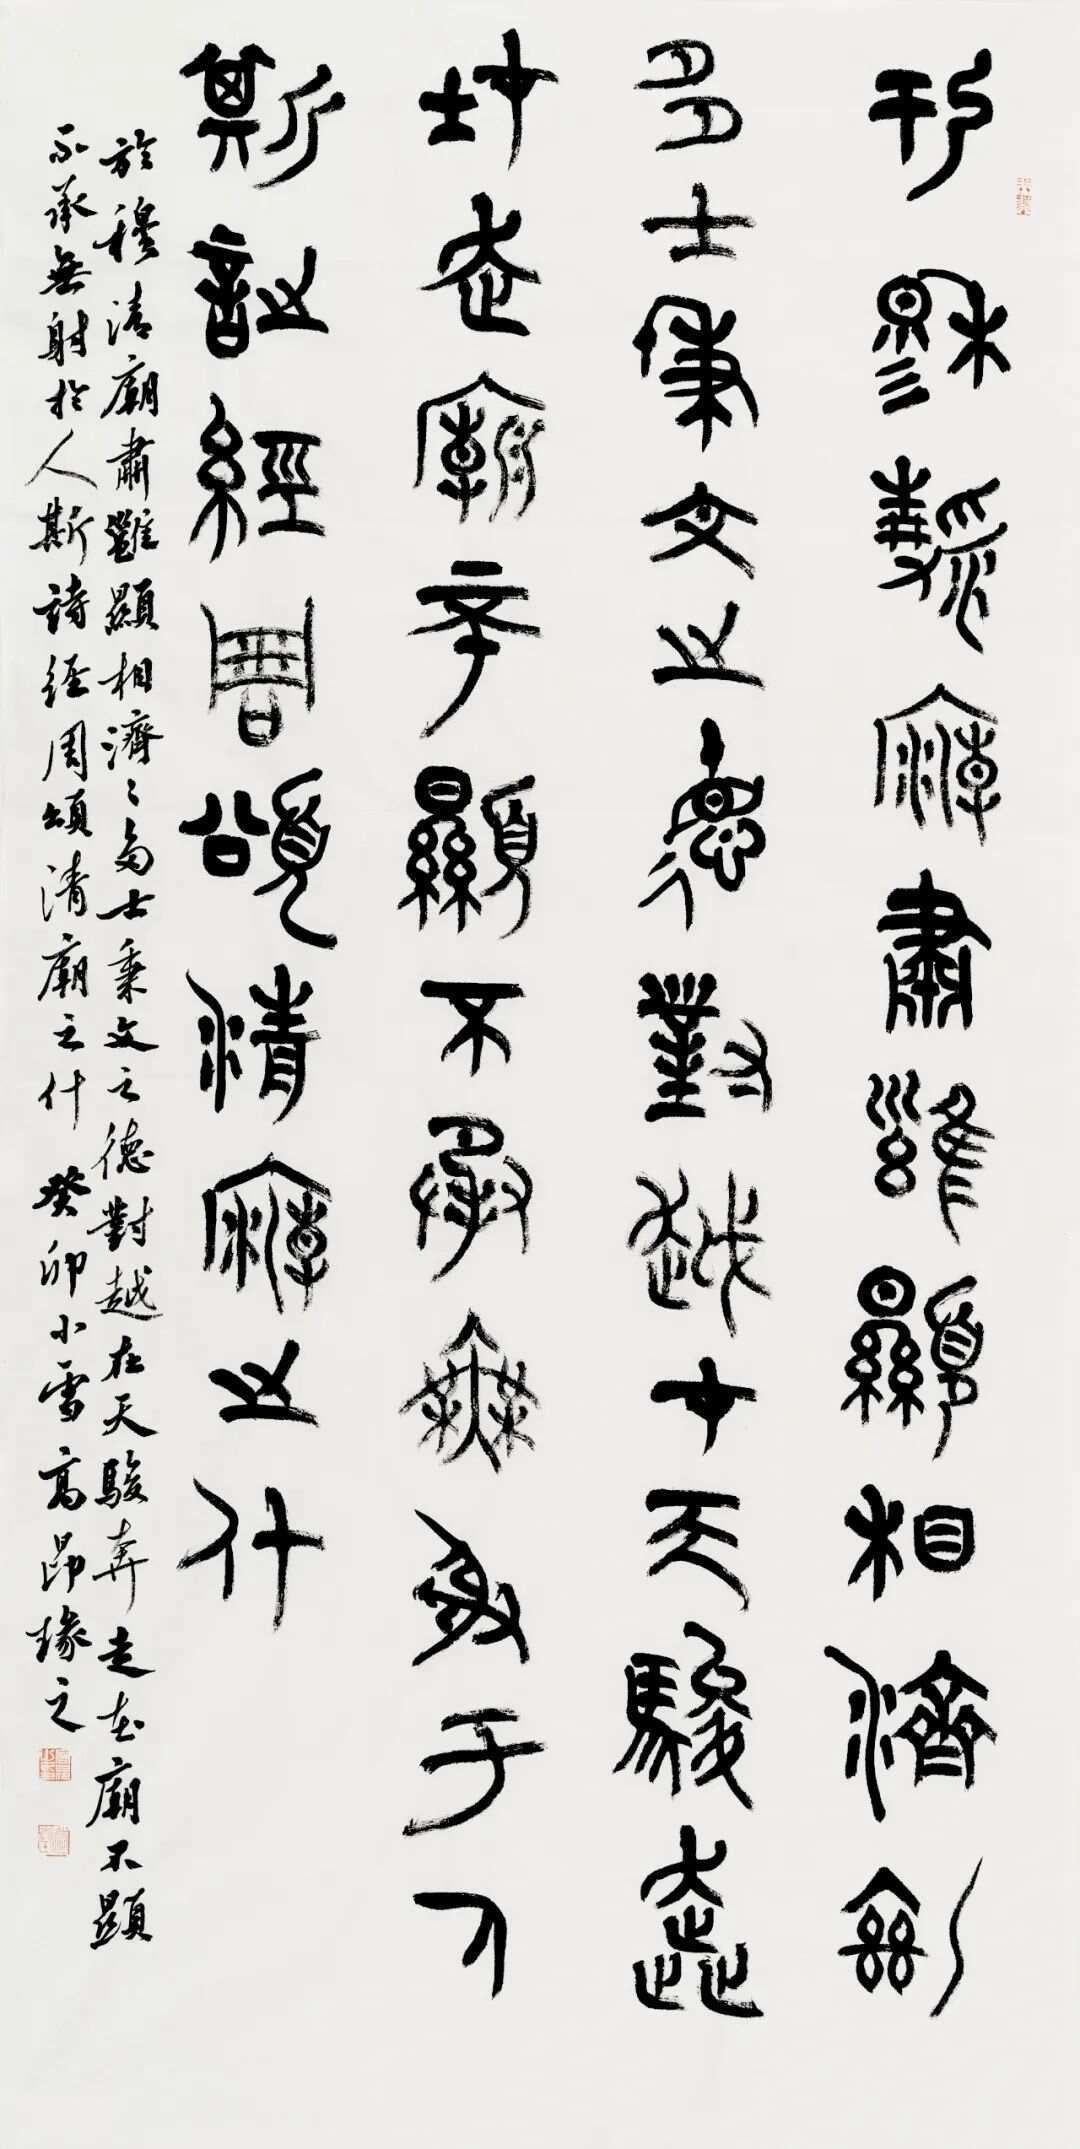 於穆清廟肅雝顯相濟濟
多士秉文之德對越在天駿奔
在走廟不顯不承無射于人
斯詩經周頌清廟之什
於穆清廟肅雝顯相濟〻多士秉文之德對越在天駿奔走在廟不顯
不承無射於人斯詩經周頌清廟之什 癸卯小雪高昂瑑之